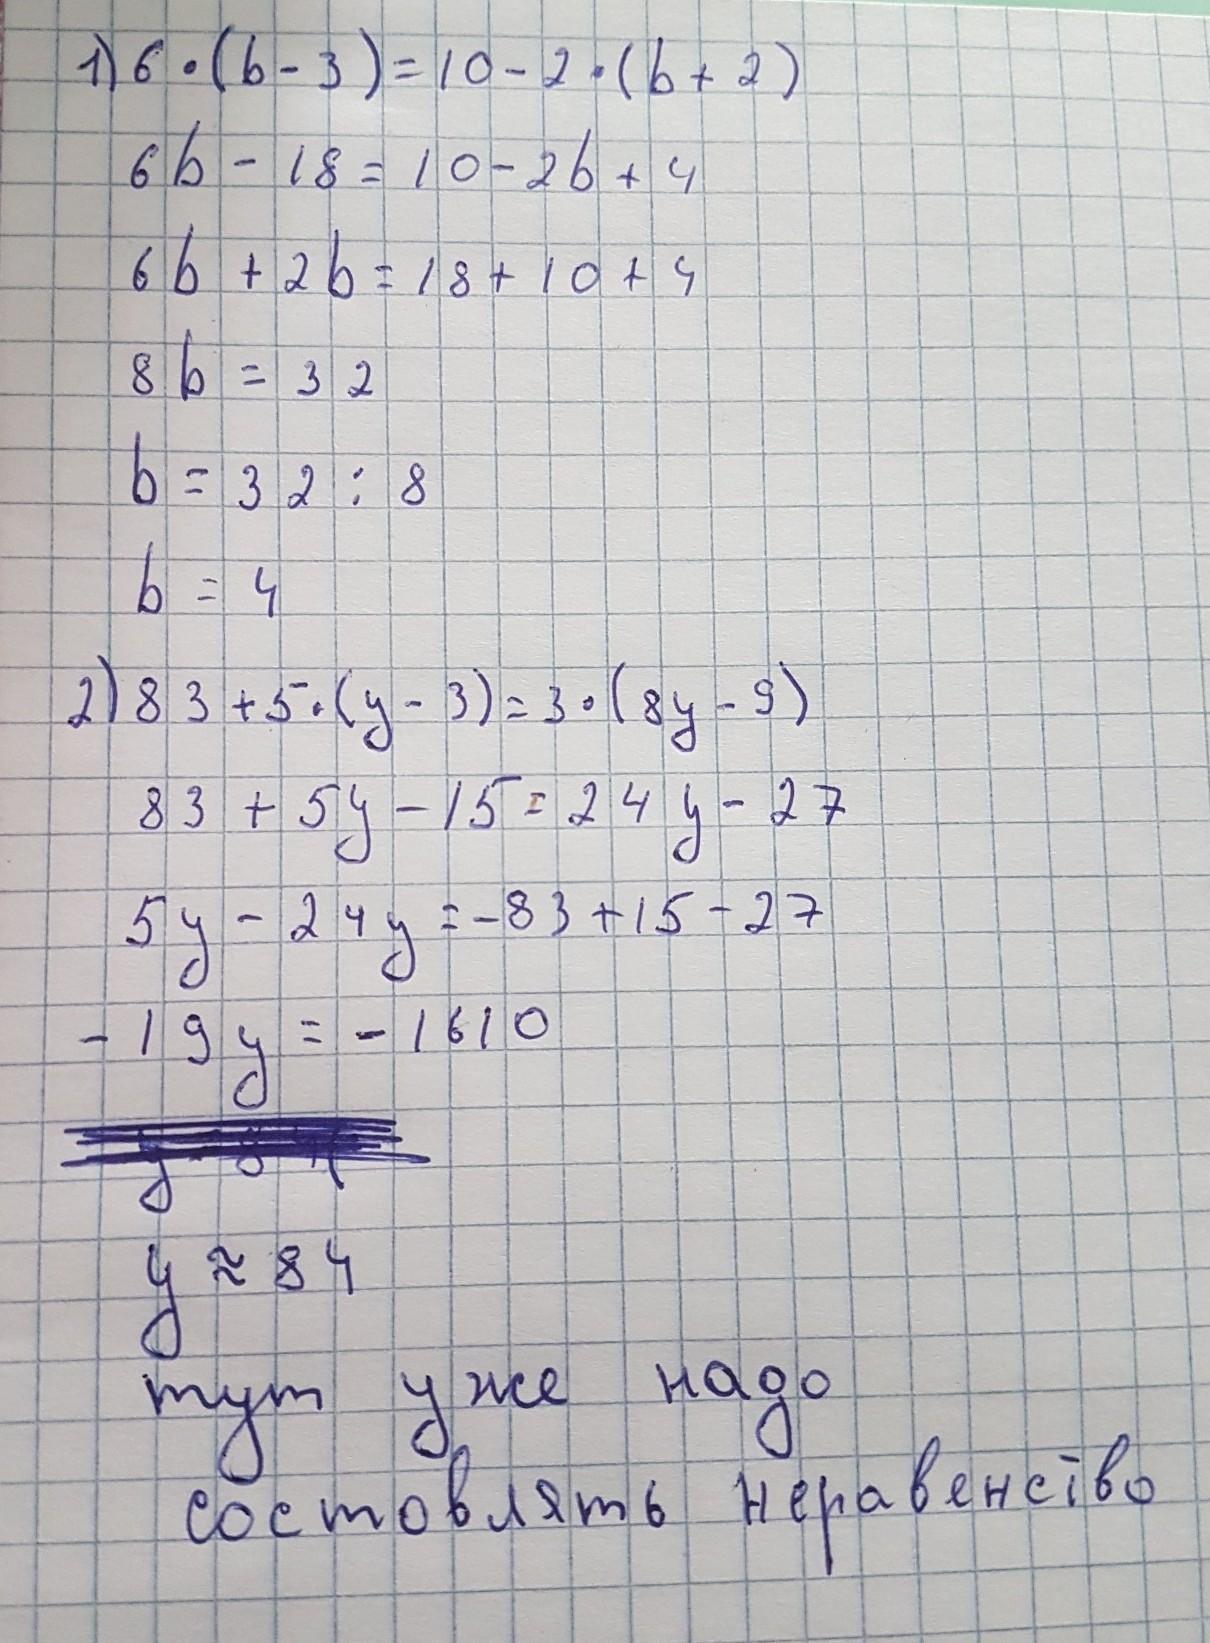 1) 6 · (b - 3) = 10 - 2 · (b + 2)
6b - 18 = 10 - 2b + 4
6b + 2b = 18 + 10 + 4
8b = 32
b = 32 : 8
b = 4
2) 83 + 5 · (y - 3) = 3 · (8y - 9)
83 + 5y - 15 = 24y - 27
5y - 24y = -83 + 15 - 27
-19y = -1610
y ≈ 84
тут уже надо
состовлять неравенство